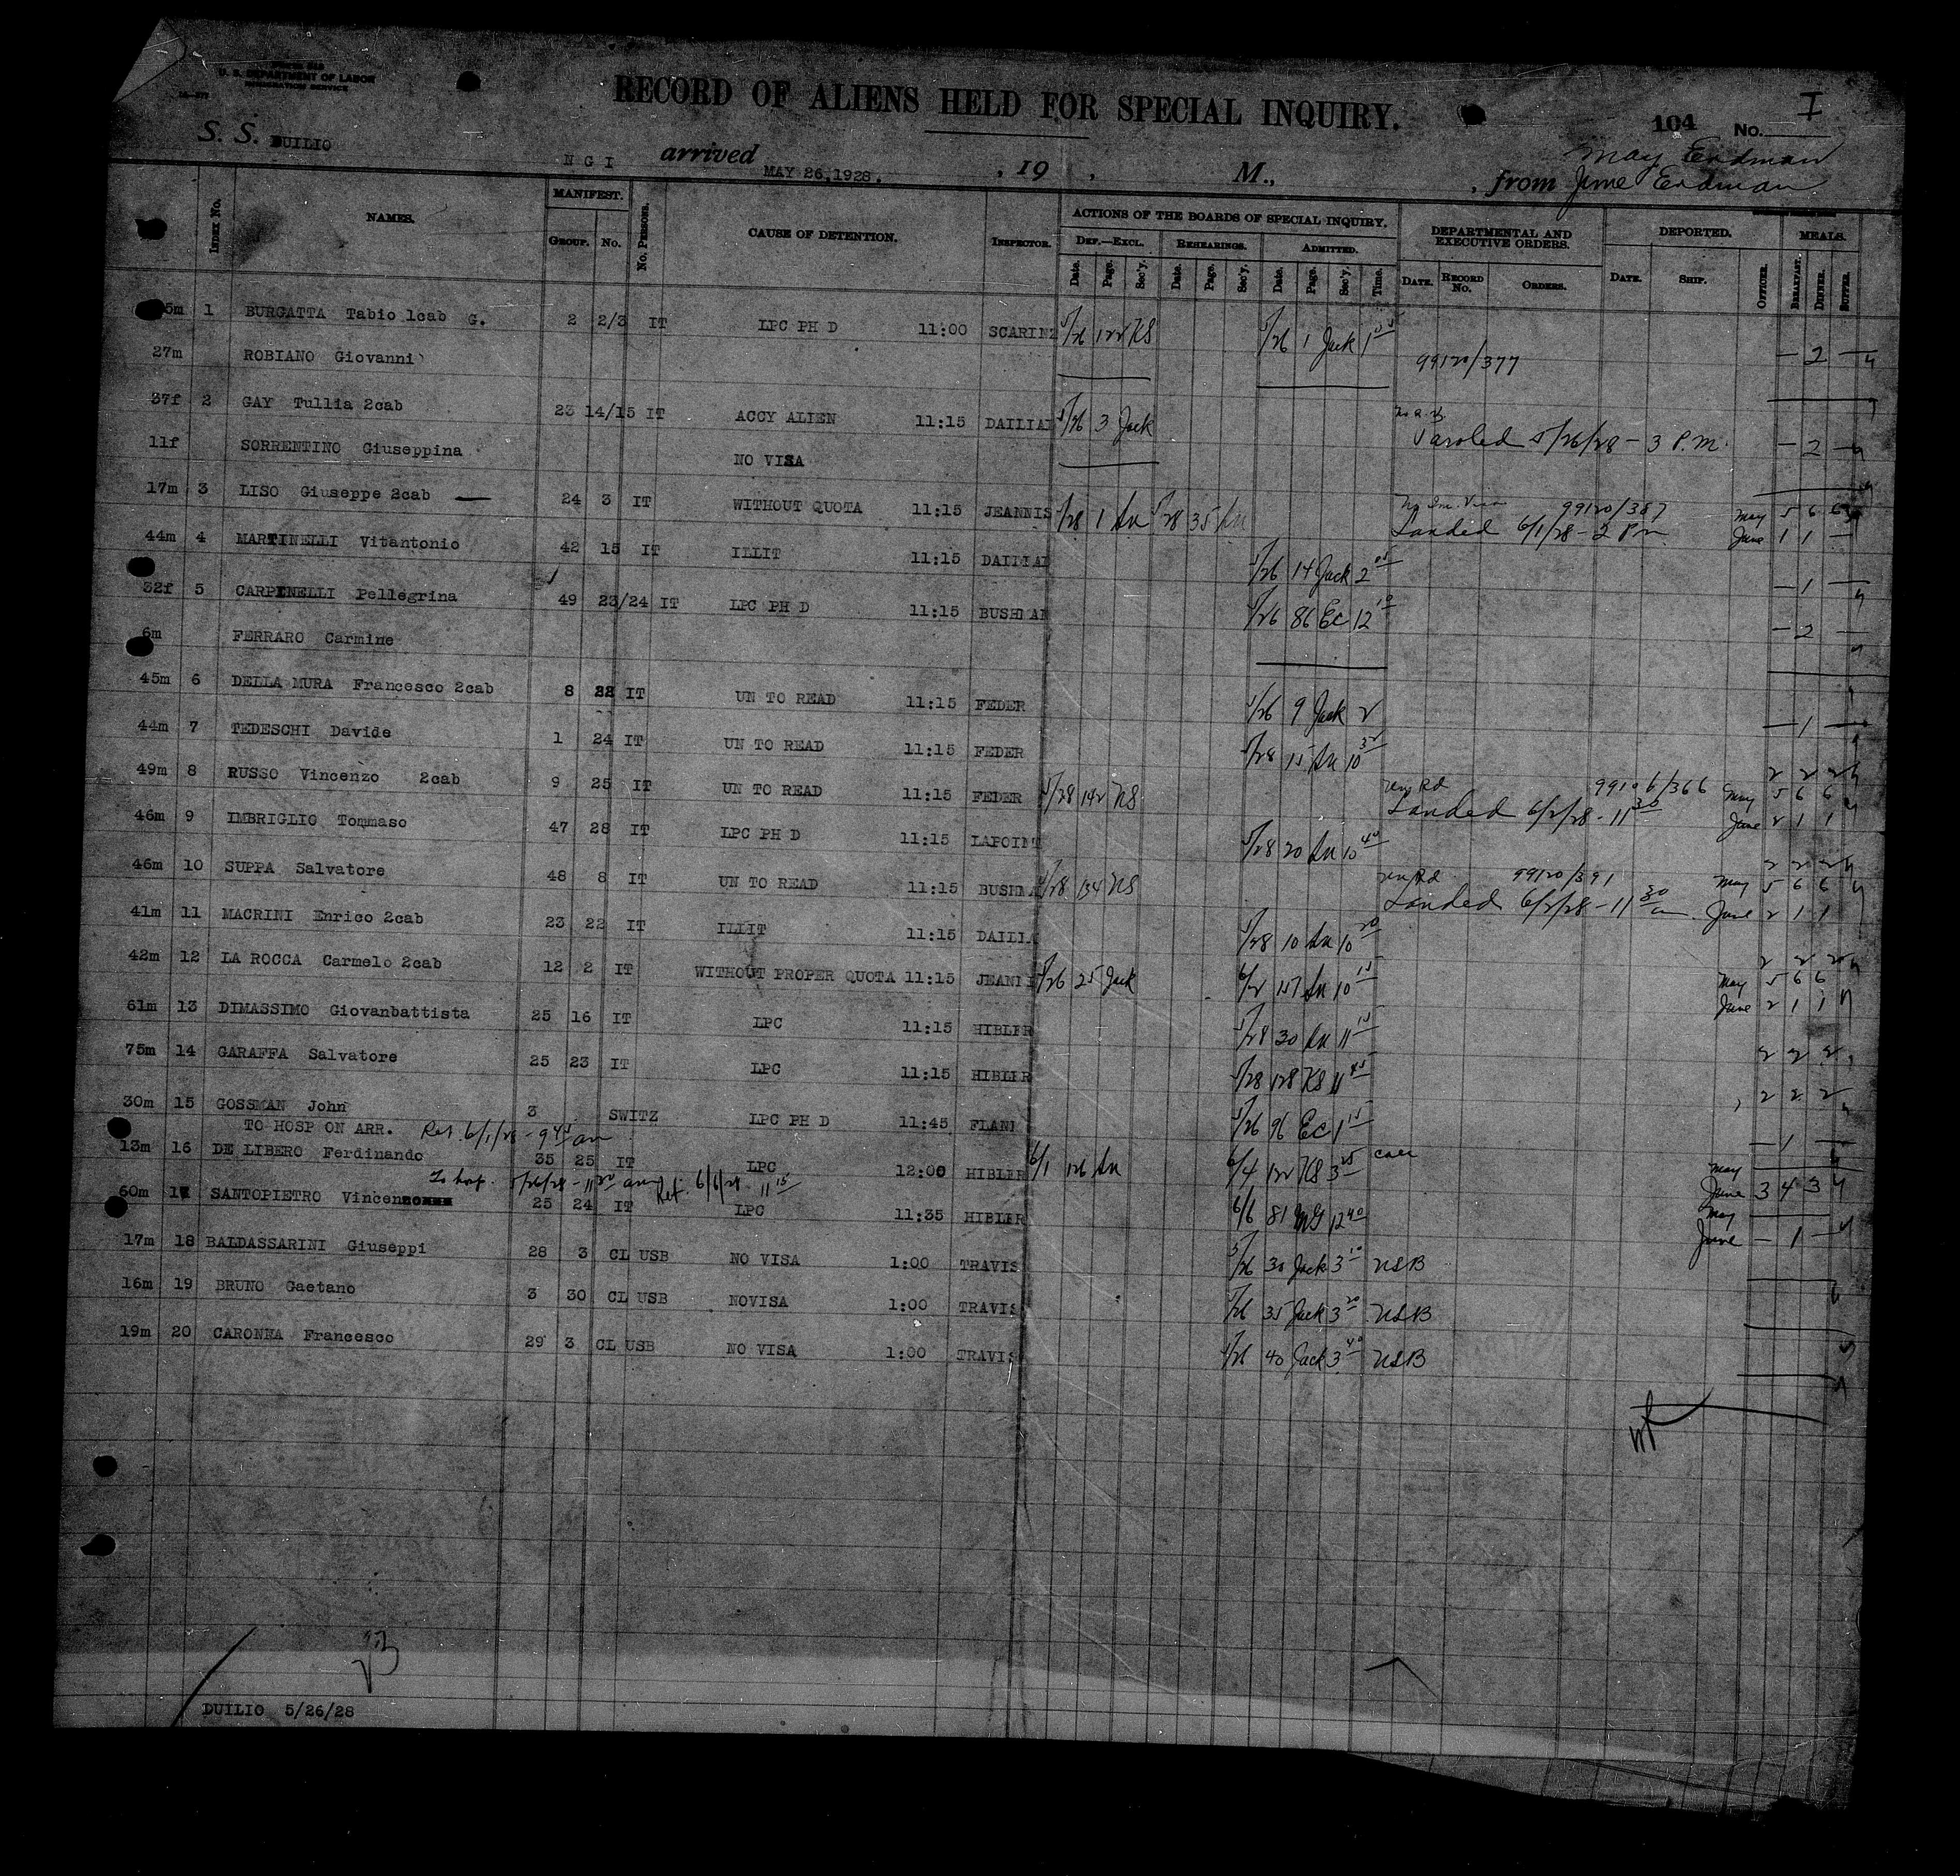 U. S. DEPARTMENT OF LABOR
IMMIGRATION SERVICE
RECORD OF ALIENS HELD FOR SPECIAL INQUIRY.
104 No. I
S. S. DUILIO N G I arrived MAY 26,1928. , 19 , M., , from
May Erdman
June Erdman
INDEX No. NAMES. MANIFEST. GROUP. No. No. PERSONS. CAUSE OF DETENTION. INSPECTOR. ACTIONS OF THE BOARDS OF SPECIAL INQUIRY. DEF.—EXCL. REHEARINGS. ADMITTED. DEPARTMENTAL AND EXECUTIVE ORDERS. DEPORTED. MEALS.
Date. Page. Sec'y. Date. Page. Sec'y. Date. Page. Sec'y. Time. DATE. RECORD No. ORDERS. DATE. SHIP. OFFICER. BREAKFAST. DINNER. SUPPER.
1 BURGATTA Tabio 1cab G. 2 2/3 IT LPC PH D 11:00 5/26 122 KS 5/26 1 Jack
27m ROBIANO Giovanni 99120/377 — 2 —
37f 2 GAY Tullia 2cab 23 14/15 IT ACCY ALIEN 11:15 5/26 3 Jack
Paroled 5/26/28 - 3 P.M. — 2 —
11f SORRENTINO Giuseppina NO VISA
17m 3 LISO Giuseppe 2cab — 24 3 IT WITHOUT QUOTA 11:15 JEANNIS 5/28 1 5/28 35 99120/387 May 5 6 6
Landed 6/1/28 - 2 Pm June 1 1 —
44m 4 MARTINELLI Vitantonio 42 15 IT ILLIT 11:15 5/26 14 Jack 2 — 1 —
32f 5 CARPENELLI Pellegrina 49 23/24 IT LPC PH D 11:15 5/26 86 Ec 12 10 — 2 —
6m FERRARO Carmine
45m 6 DELLA MURA Francesco 2cab 8 22 IT UN TO READ 11:15 FEDER 5/26 9 Jack 2 — 1 —
44m 7 TEDESCHI Davide 1 24 IT UN TO READ 11:15 FEDER 5/28 15 10 2 2 2
49m 8 RUSSO Vincenzo 2cab 9 25 IT UN TO READ 11:15 FEDER 5/28 142 KS 99106/366 May 5 6 6
Landed 6/2/28 - 11 30 June 2 1 1
46m 9 IMBRIGLIO Tommaso 47 28 IT LPC PH D 11:15 LAPOINT 5/28 20 10 40 2 2 2
46m 10 SUPPA Salvatore 48 8 IT UN TO READ 11:15 5/28 134 KS 99120/391 May 5 6 6
Landed 6/2/28 - 11 30 am June 2 1 1
41m 11 MACRINI Enrico 2cab 23 22 IT ILLIT 11:15 5/28 10 10 20 2 2 2
42m 12 LA ROCCA Carmelo 2cab 12 2 IT WITHOUT PROPER QUOTA 11:15 5/26 25 Jack 6/2 157 10 15 May 5 6 6
June 2 1 1
61m 13 DIMASSIMO Giovanbattista 25 16 IT LPC 11:15 HIBLER 5/28 30 11 2 2 2
75m 14 GARAFFA Salvatore 25 23 IT LPC 11:15 HIBLER 5/28 128 KS 11 45 2 2 2
30m 15 GOSSMAN John 3 SWITZ LPC PH D 11:45 5/26 96 Ec 1 15 — 1 —
TO HOSP ON ARR. Ret. 6/1/28 - 9 45 am
13m 16 DE LIBERO Ferdinando 35 25 IT LPC 12:00 HIBLER 6/1 126 6/4 122 KS 3 25 May
June 3 4 3
To hosp. 5/26/28 - 11 30 am Ret. 6/6/28 11 15
60m 17 SANTOPIETRO Vincenzo 25 24 IT LPC 11:35 HIBLER 6/6 81 12 40 May —
June — 1 —
17m 18 BALDASSARINI Giuseppi 28 3 CL USB NO VISA 1:00 TRAVIS 5/26 30 Jack 3 10 USB
16m 19 BRUNO Gaetano 3 30 CL USB NOVISA 1:00 TRAVIS 5/26 35 Jack 3 20 USB
19m 20 CARONNA Francesco 29 3 CL USB NO VISA 1:00 TRAVIS 5/26 40 Jack 3 40 USB
DUILIO 5/26/28